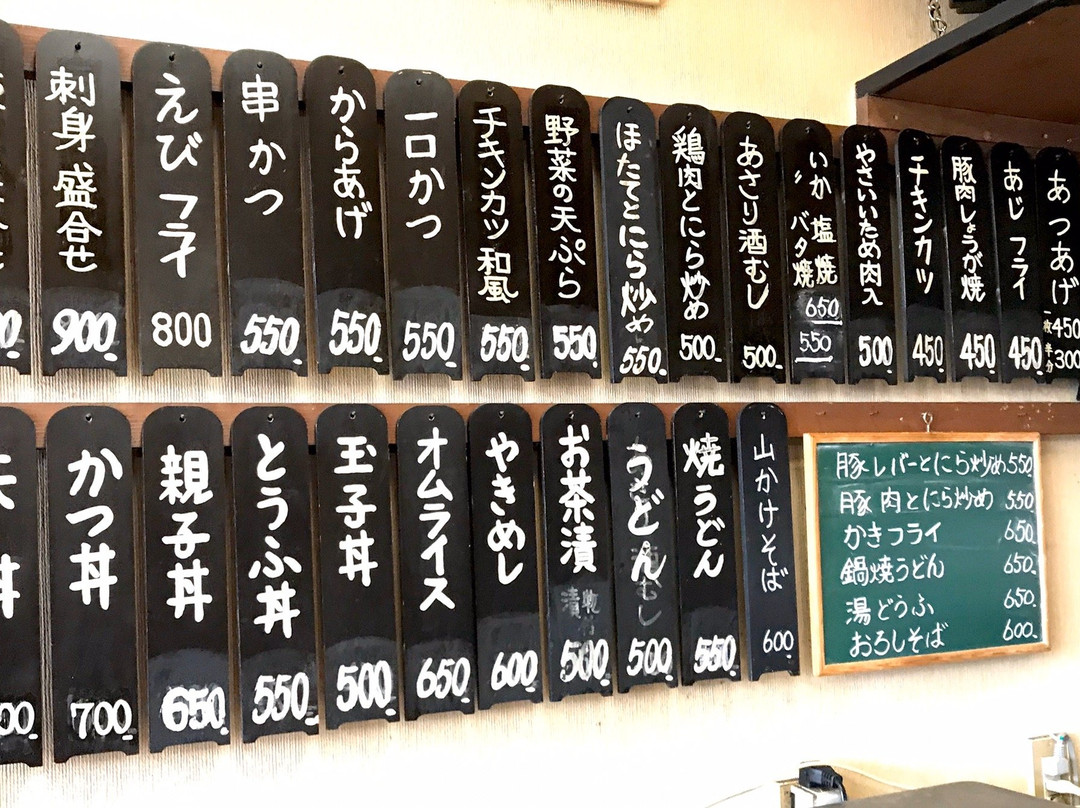 刺身盛合せ
900
えびフライ
800
串かつ
550
からあげ
550
一口かつ
550
チキンカツ和風
550
野菜の天ぷら
550
ほたてとにら炒め
550
鶏肉とにら炒め
500
あさり酒むし
500
いか塩焼
〃バタ焼
650
550
やさいいため肉入
500
チキンカツ
450
豚肉しょうが焼
450
あじフライ
450
あつあげ
一枚450
半分300
かつ丼
700
親子丼
650
とうふ丼
550
玉子丼
500
オムライス
650
やきめし
600
お茶漬
500
うどん
500
焼うどん
550
山かけそば
600
豚レバーとにら炒め550
豚肉とにら炒め 550
かきフライ 650
鍋焼うどん 650
湯どうふ 650
おろしそば 600